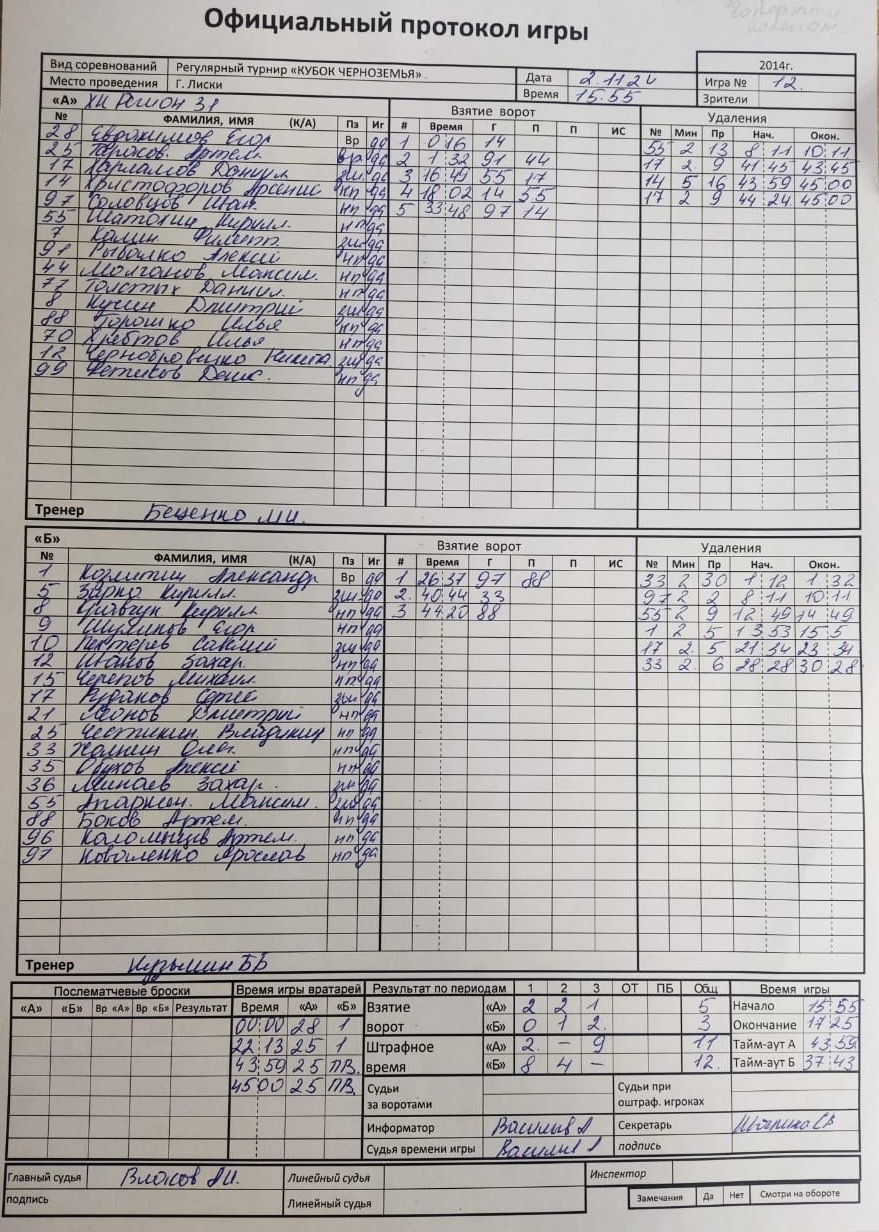 Официальный протокол игры
Вид соревнований Регулярный турнир «КУБОК ЧЕРНОЗЕМЬЯ» 2014г.
Место проведения Г. Лиски Дата 2.11 24 Игра № 12.
Время 15:55 Зрители
«А» ХК Регион 31 Взятие ворот Удаления
№ ФАМИЛИЯ, ИМЯ (К/А) Пз Иг # Время Г П П ИС № Мин Пр Нач. Окон.
28 Евдокимов Егор Вр да 1 0:16 14 55 2 13 8:11 10:11
25 Тарасов Артем. Вр да 2 1:32 91 44 17 2. 9 41:45 43:45
17 Варламов Даниил зщ да 3 16:49 55 17 14 5 16 43:59 45:00
14 Христофоров Арсений нп да 4 18:02 14 55 17 2 9 44:24 45:00
97 Соловцов Иван. нп да 5 33:48 97 14
55 Шатохин Кирилл. нп да
7 Калин Филипп. зщ да
91 Рыбалко Алексей нп да
44 Молчанов Максим. нп да
77 Толстых Даниил. нп да
8 Кучин Дмитрий зщ да
88 Торошко Илья нп да
70 Хребтов Илья нп да
12 Чернобровенко Никита. зщ да
99 Фетисов Денис. нп да
Тренер Беценко М.И.
«Б» Взятие ворот Удаления
№ ФАМИЛИЯ, ИМЯ (К/А) Пз Иг # Время Г П П ИС № Мин Пр Нач. Окон.
1 Александр Вр да 1 26:37 97 88 33 2 30 1:12 1:32
5 Кирилл. зщ да 2. 40:44 33 97 2 2 8:11 10:11
8 Кравчук Кирилл нп да 3 44:20 88 55 2 9 12:49 14:49
9 Егор нп да 1 2 5 13:53 15:5
10 Савелий зщ да 17 2. 5 21:34 23:34
12 Иванов Захар. нп да 33 2. 6 28:28 30:28
15 Черепов Михаил. нп да
17 зщ да
21 Леонов Дмитрий нп да
25 Честикин Владимир нп да
33 Жолнин Олег. нп да
35 Обухов Алексей нп да
36 Минаев Захар. зщ да
55 Апаркин. Максим. зщ да
88 Боков Артем. нп да
96 Коломыцев Артем. нп да
97 Коваленко Ярослав нп да
Тренер Кузьмин ББ
Послематчевые броски Время игры вратарей Результат по периодам 1 2 3 ОТ ПБ Общ Время игры
«А» «Б» Вр «А» Вр «Б» Результат Время «А» «Б» Взятие «А» 2 2 1 5 Начало 15:55
00:00 28 1 ворот «Б» 0 1 2. 3 Окончание 17:25
22:13 25 1 Штрафное «А» 2. – 9 11 Тайм-аут А 43:59
43:59 25 ПВ. время «Б» 8 4 – 12. Тайм-аут Б 37:43
45:00 25 ПВ. Судьи за воротами Судьи при оштраф. игроках
Информатор Васильев А Секретарь
Судья времени игры Васильев А подпись
Главный судья Власов А.И. Линейный судья Инспектор
подпись Линейный судья Замечания Да Нет Смотри на обороте